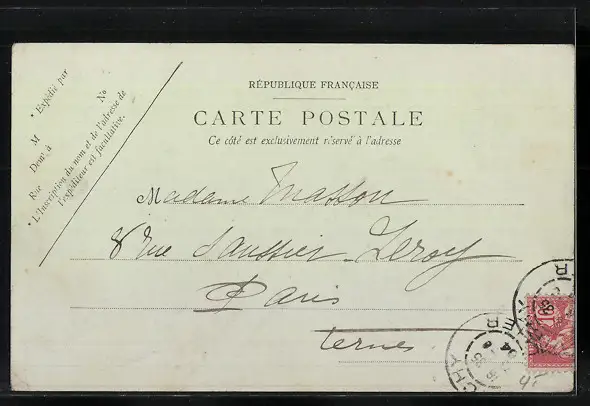 * Expédié par
M
Demt à
Rue No
* L'Inscription du nom et de l'adresse de
l'expéditeur est facultative.
RÉPUBLIQUE FRANÇAISE
CARTE POSTALE
Ce côté est exclusivement réservé à l'adresse
Madame Masson
8 rue Saussier-Leroy
Paris
Ternes
10